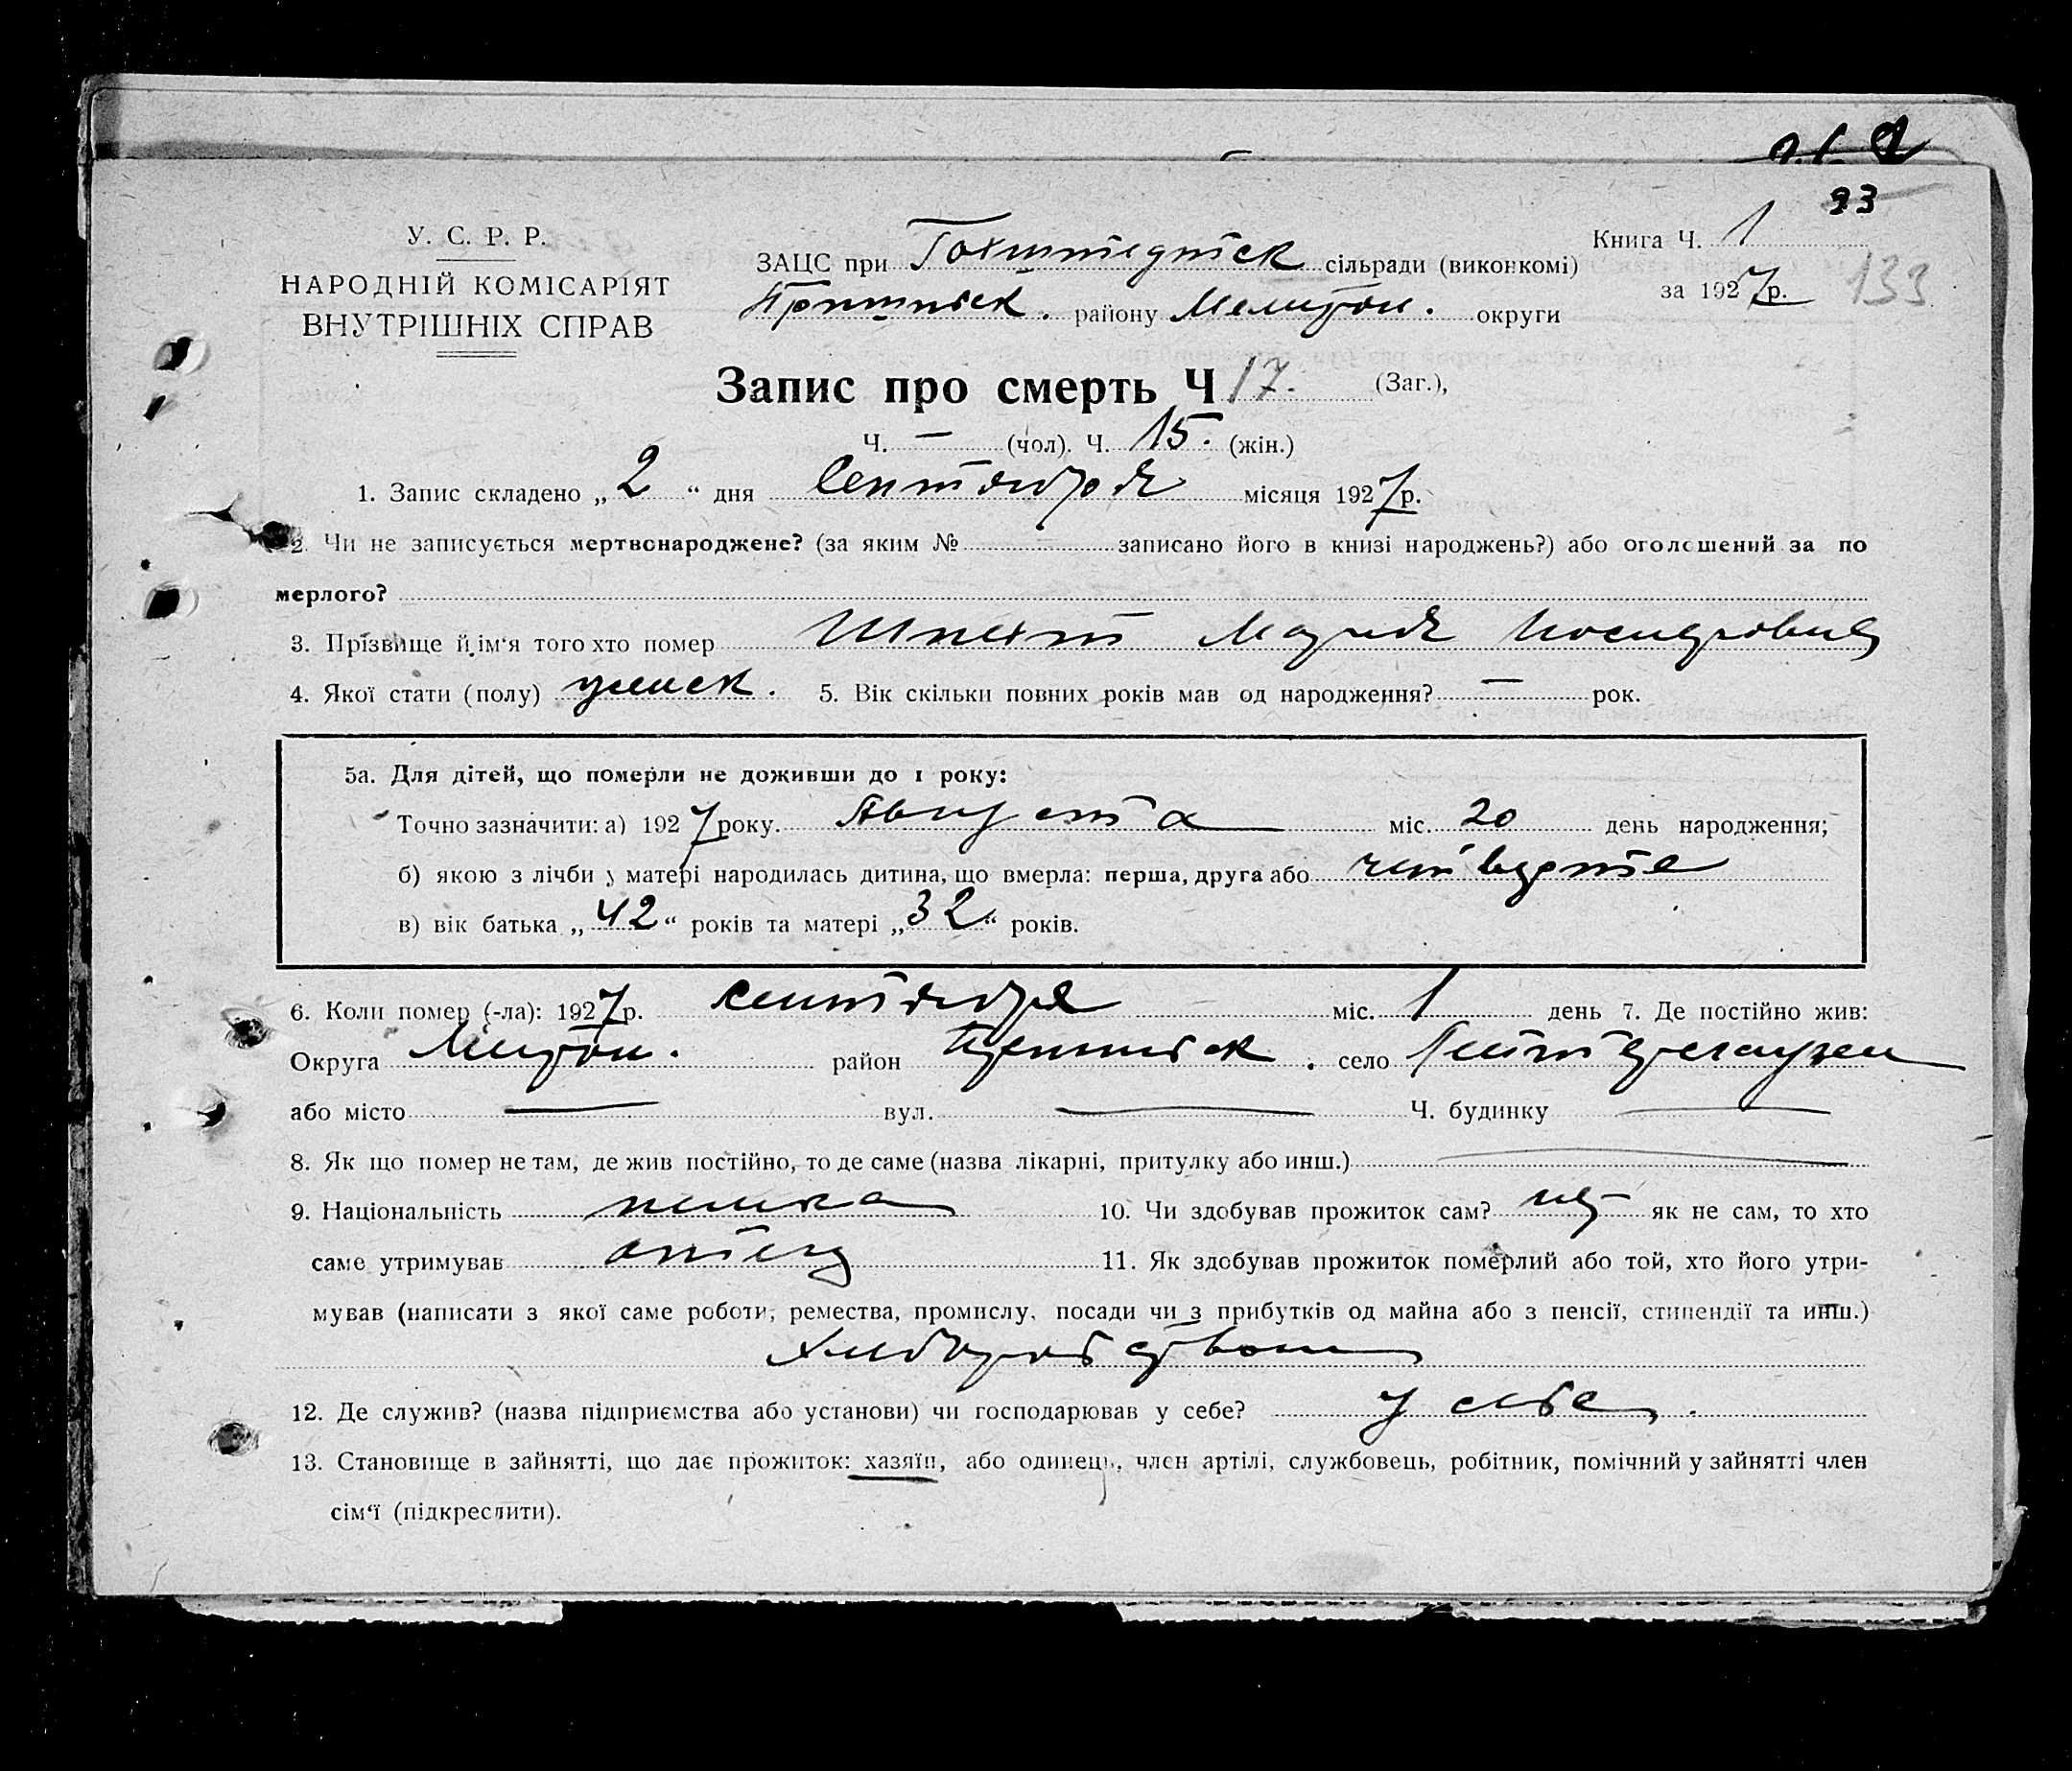 93
У. С. Р. Р.
НАРОДНІЙ КОМІСАРІЯТ
ВНУТРІШНІХ СПРАВ
ЗАЦС при Гохштедтск сільради (виконкомі)
Пришибск. району Мелитоп. округи
Книга Ч. 1
за 1927р. 133
Запис про смерть Ч 17. (Заг.),
Ч. — (чол). Ч. 15. (жін.)
1. Запис складено „2“ дня Сентября місяця 1927р.
2. Чи не записується мертвонароджене? (за яким № записано його в книзі народжень?) або оголошений за по
мерлого?
3. Прізвище й ім‘я того хто помер Шпехт Мария
4. Якої стати (полу) женск. 5. Вік скільки повних років мав од народження? — рок.
5а. Для дітей, що померли не доживши до 1 року:
Точно зазначити: а) 1927 року. Августа міс. 20 день народження;
б) якою з лічби у матері народилась дитина, що вмерла: перша, друга або
в) вік батька „42“ років та матері „32“ років.
6. Коли помер (-ла): 1927р. сентября міс. 1 день 7. Де постійно жив:
Округа район село
або місто — вул. — Ч. будинку —
8. Як що помер не там, де жив постійно, то де саме (назва лікарні, притулку або инш.) —
9. Національність немка 10. Чи здобував прожиток сам? нет як не сам, то хто
саме утримував отец 11. Як здобував прожиток померлий або той, хто його утри-
мував (написати з якої саме роботи, ремества, промислу, посади чи з прибутків од майна або з пенсії, стипендії та инш.)
12. Де служив? (назва підприємства або установи) чи господарював у себе? у себе.
13. Становище в зайнятті, що дає прожиток: хазяїн, або одинець, член артілі, службовець, робітник, помічний у зайнятті член
сім‘ї (підкреслити).